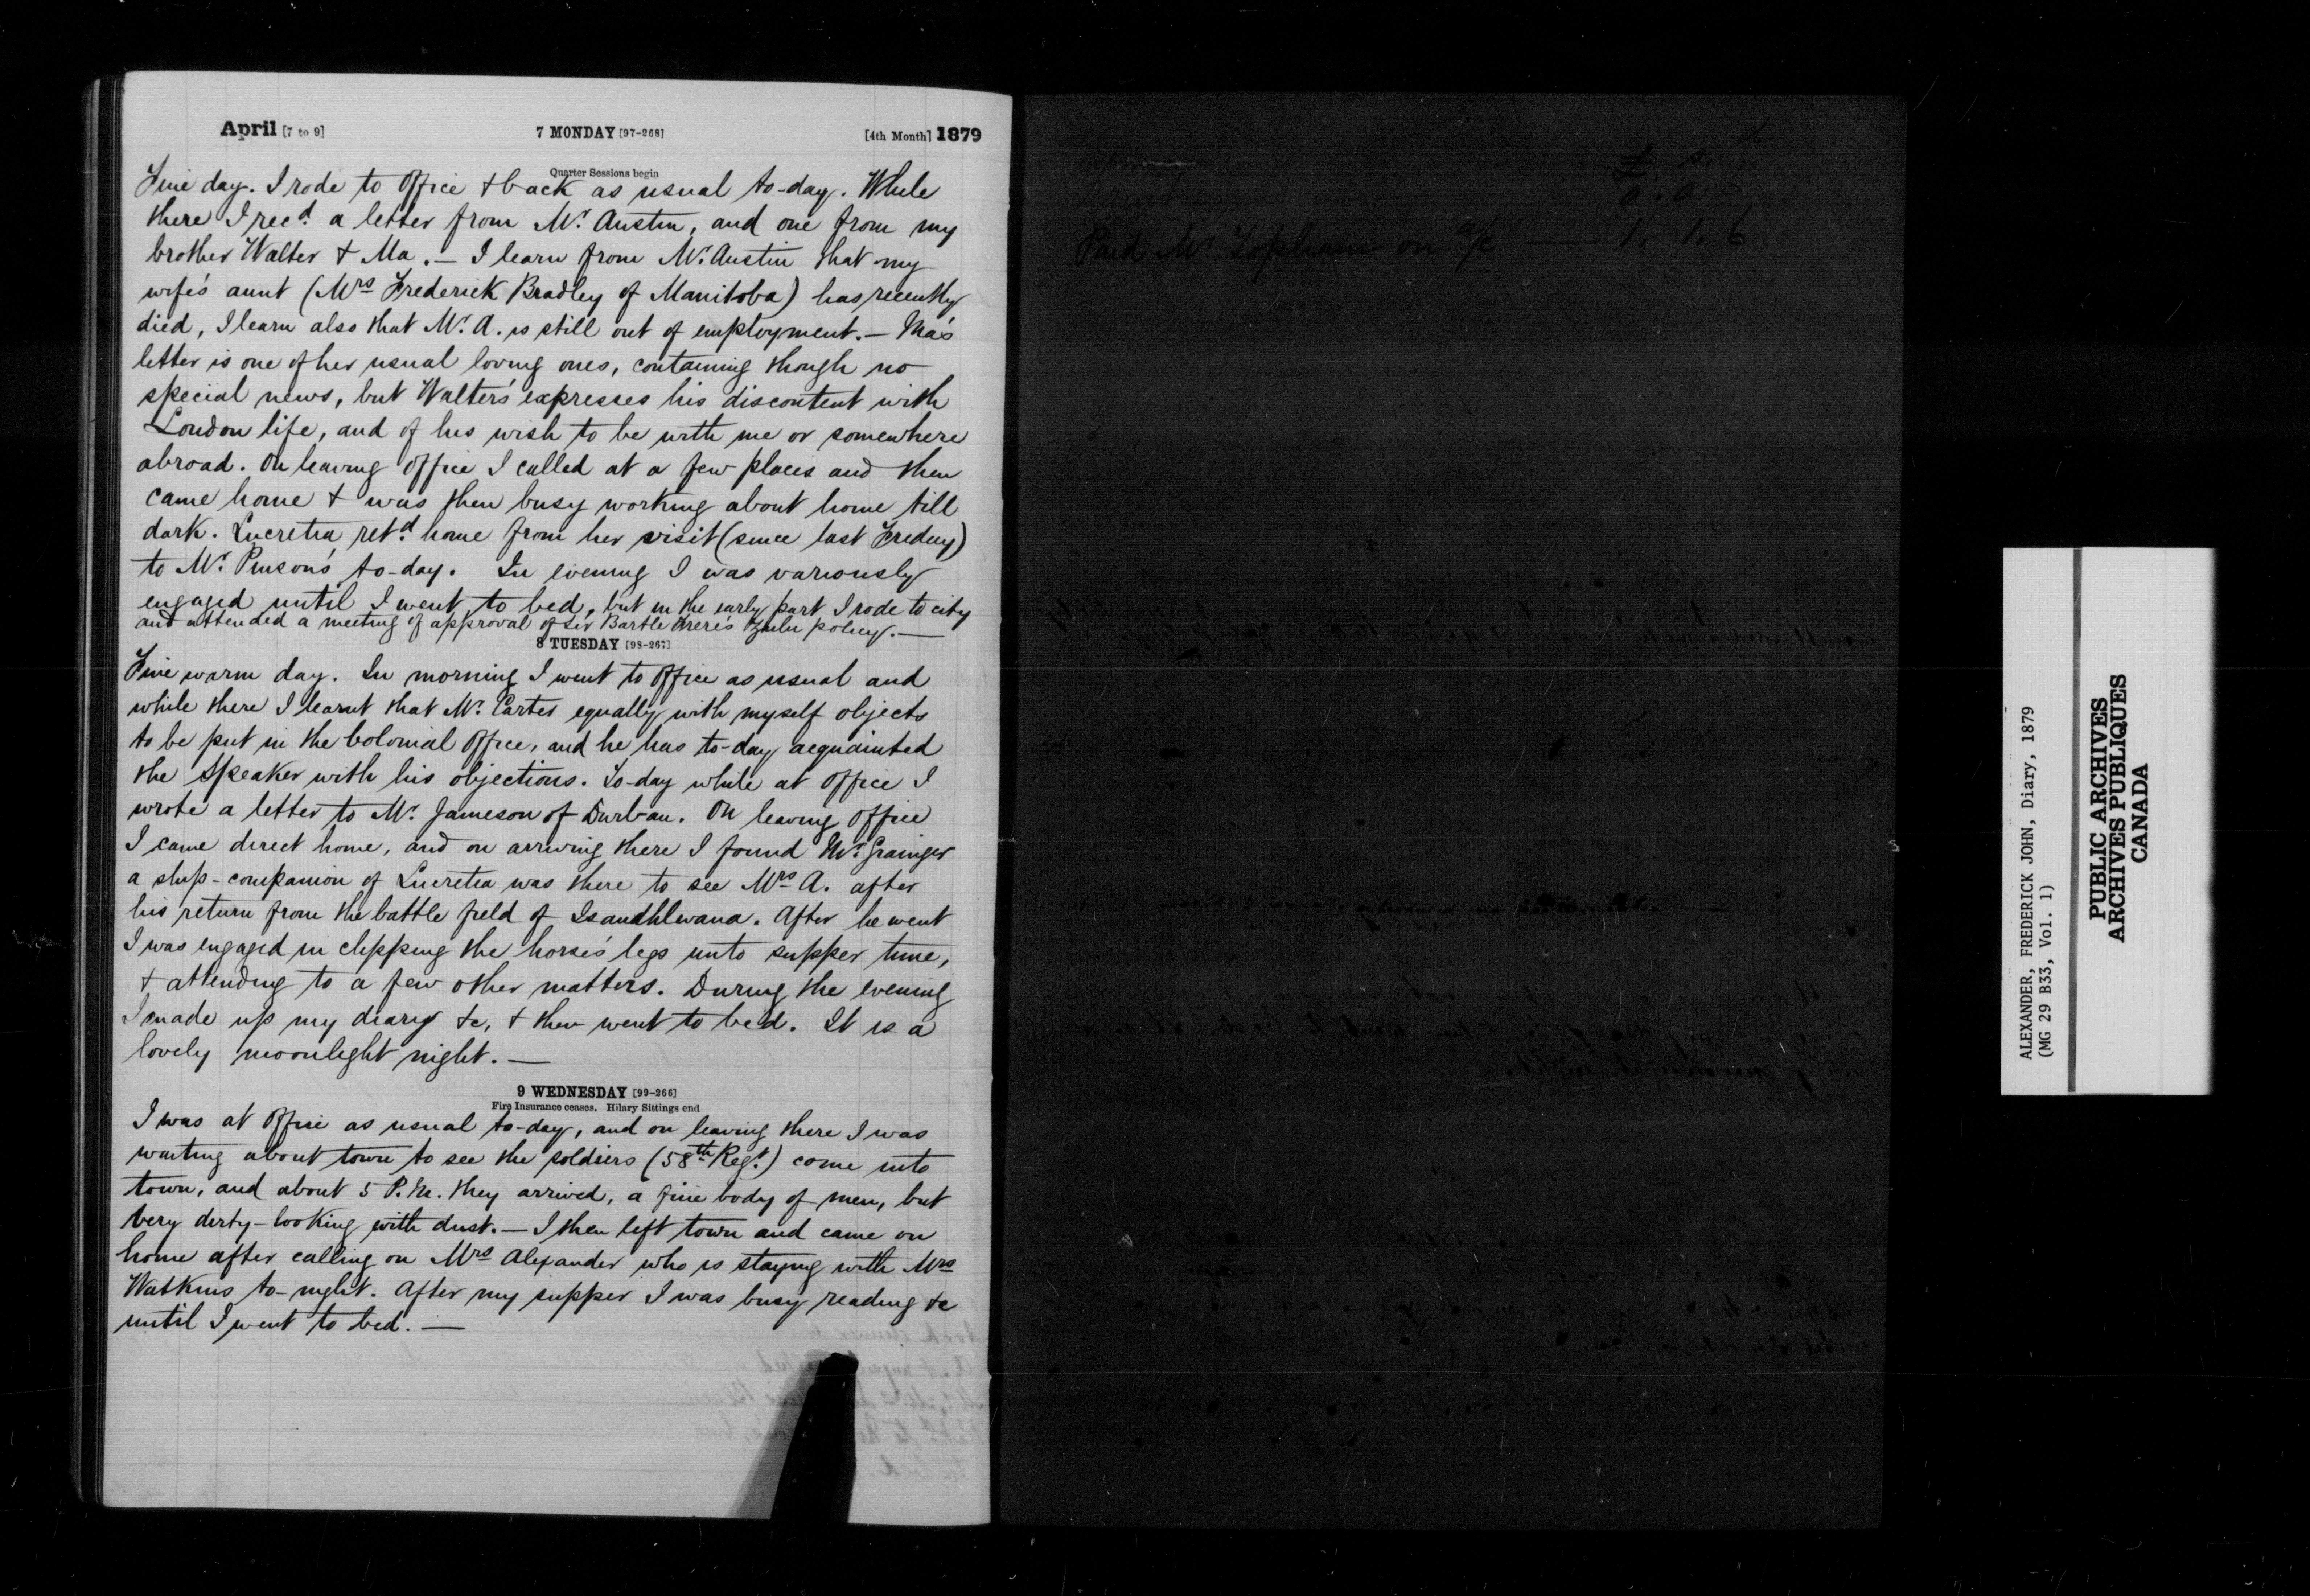 April [7 to 9] 7 MONDAY [97-268] [4th Month] 1879
Quarter Sessions begin
Fine day. I rode to office & back as usual to-day. While
there I recd. a letter from Mr. Austin, and one from my
brother Walter & Ma. — I learn from Mr. Austin that my
wife's aunt (Mrs Frederick Bradley of Manitoba) has recently
died, I learn also that Mr. A. is still out of employment. — Ma's
letter is one of her usual loving ones, containing though no
special news, but Walter's expresses his discontent with
London life, and of his wish to be with me or somewhere
abroad. On leaving office I called at a few places and then
came home & was then busy working about home till
dark. Lucretia retd. home from her visit (since last Friday)
to Mr. Pinson's to-day. In evening I was variously
engaged until I went to bed, but in the early part I rode to city
and attended a meeting of approval of Sir Bartle Frere's Zulu policy. —
8 TUESDAY [98-267]
Fine warm day. In morning I went to office as usual and
while there I learnt that Mr. Carter equally with myself objects
to be put in the Colonial Office, and he has to-day acquainted
the Speaker with his objections. To-day while at office I
wrote a letter to Mr. Jameson of Durban. On leaving office
I came direct home, and on arriving there I found Mr. Grainger
a ship-companion of Lucretia was there to see Mrs A. after
his return from the battle field of Isandhlwana. After he went
I was engaged in clipping the horse's legs unto supper time,
& attending to a few other matters. During the evening
I made up my diary &c, & then went to bed. It is a
lovely moonlight night. —
9 WEDNESDAY [99-266]
Fire Insurance ceases. Hilary Sittings end
I was at office as usual to-day, and on leaving there I was
waiting about town to see the soldiers (58th Regt.) come into
town, and about 5 P.M. they arrived, a fine body of men, but
very dirty-looking with dust. — I then left town and came on
home after calling on Mrs Alexander who is staying with Mrs
Watkins to-night. After my supper I was busy reading &c
until I went to bed. —
£ s. d
0. 0. 6
Paid Mr Topham on a/c — 1. 1. 6
ALEXANDER, FREDERICK JOHN, Diary, 1879
(MG 29 B33, Vol. 1)
PUBLIC ARCHIVES
ARCHIVES PUBLIQUES
CANADA